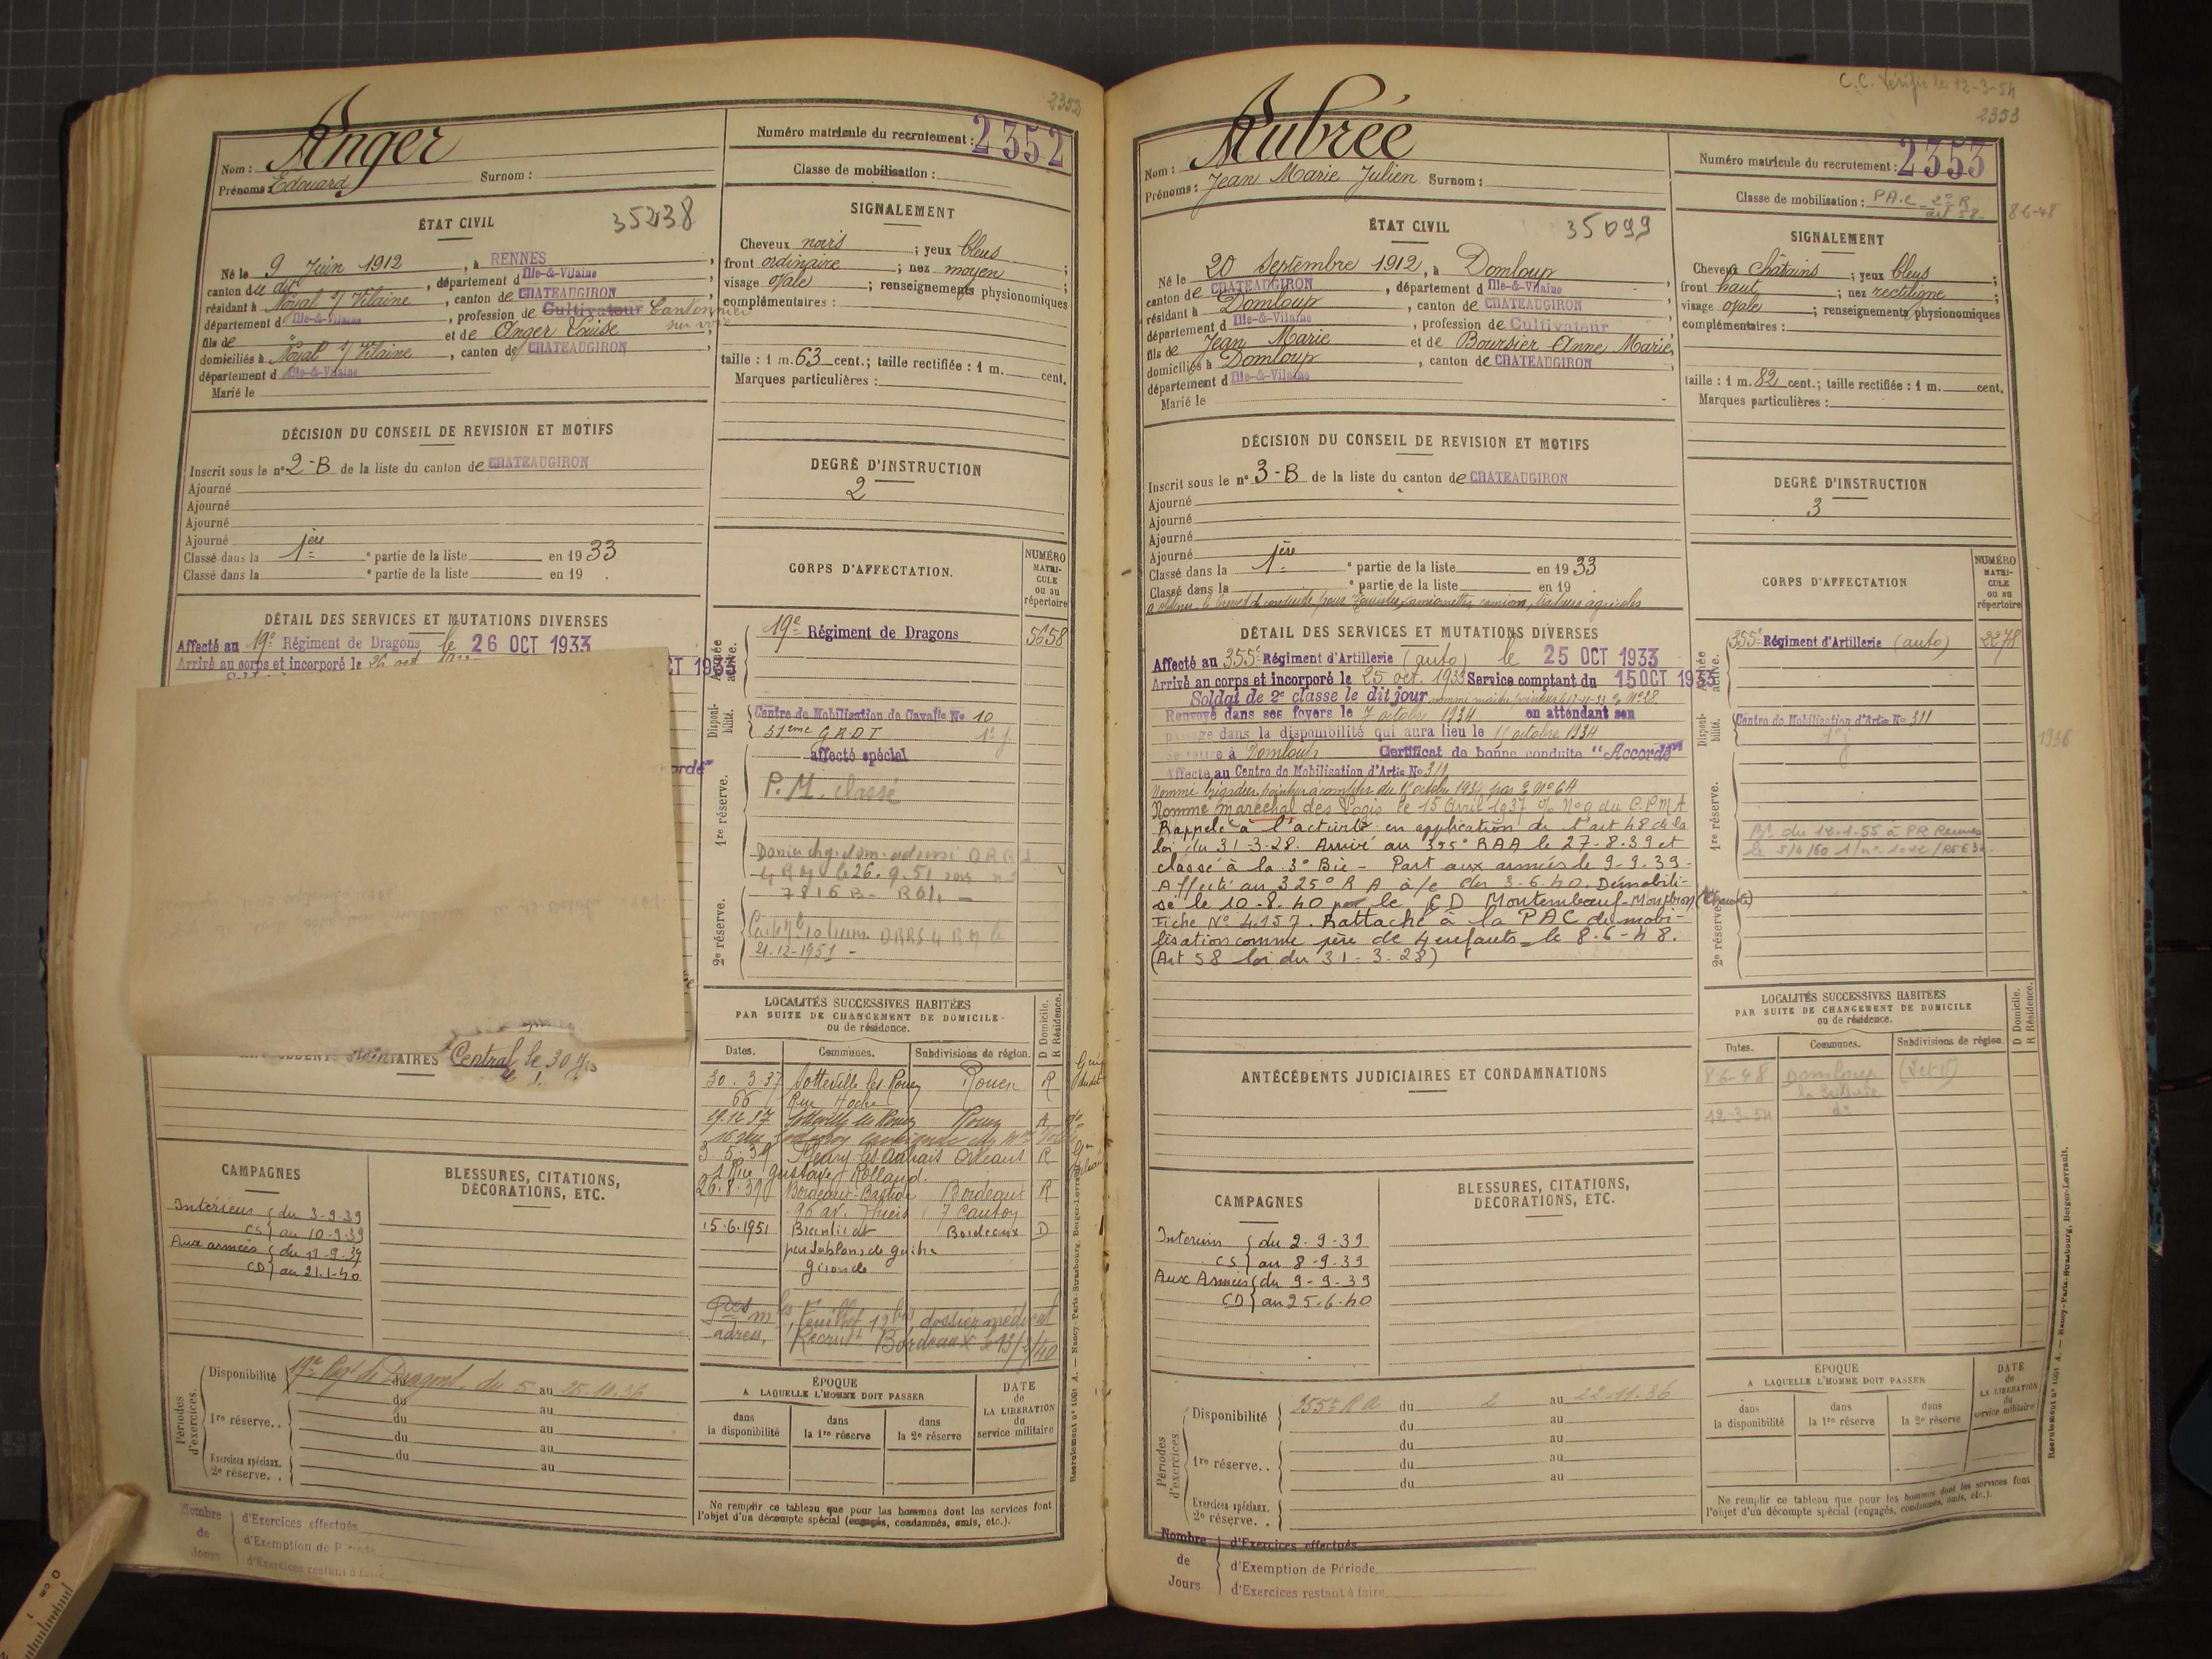 2352
Anger
Nom :
Prénoms : Edouard Surnom :
Numéro matricule du recrutement : 2352
Classe de mobilisation :
ÉTAT CIVIL
35238
Né le 9 Juin 1912, à RENNES
canton du dit, département d Ille-&-Vilaine
résidant à Noyal s/ Vilaine, canton de CHATEAUGIRON
département d Ille-&-Vilaine, profession de Cultivateur Cantonnier
sur voie
fils de et de Anger Louise
domiciliés à Noyal s/ Vilaine, canton de CHATEAUGIRON
département d Ille-&-Vilaine
Marié le
SIGNALEMENT
Cheveux noirs ; yeux bleus ;
front ordinaire ; nez moyen ;
visage ovale ; renseignements physionomiques
complémentaires :
taille : 1 m. 63 cent.; taille rectifiée : 1 m. cent.
Marques particulières :
DÉCISION DU CONSEIL DE REVISION ET MOTIFS
Inscrit sous le n° 2-B de la liste du canton de CHATEAUGIRON
Ajourné
Ajourné
Ajourné
Ajourné
Classé dans la 1ère partie de la liste en 1933
Classé dans la partie de la liste en 19 .
DEGRÉ D'INSTRUCTION
2
DÉTAIL DES SERVICES ET MUTATIONS DIVERSES
Affecté au 19e Régiment de Dragons le 26 OCT 1933
Arrivé au corps et incorporé le 26 oct
CORPS D'AFFECTATION.
NUMÉRO MATRI-CULE ou au répertoire
19e Régiment de Dragons 5658
Disponi-bilité.
Centre de Mobilisation de Cavalie No 10
31ème G.R.D.I
affecté spécial
1re réserve.
P.M. classé
2e réserve.
21.12-1951 -
Central le 30
LOCALITÉS SUCCESSIVES HABITÉES
PAR SUITE DE CHANGEMENT DE DOMICILE
ou de résidence.
D Domicile.
R Résidence.
Dates. Communes. Subdivisions de région.
30.3.37 Sotteville les Rouen Rouen R
66 Rue Hoche
19.12.37 Sotteville les Rouen Rouen
3.5.39 Fleury les Aubrais Orléans R
1 Rue Gustave Rolland.
26.8.39 Bordeaux-Bastide Bordeaux R
15-6.1951 Bordeaux D
Gironde
CAMPAGNES
Intérieur { du 3-9-39
CS } au 10-9-39
Aux armées { du 11-9-39
CD } au 21.1-40
BLESSURES, CITATIONS,
DÉCORATIONS, ETC.
Recrut Bordeaux le 13/2/40
Périodes d'exercices.
Disponibilité 19e Régt de Dragons du 5 au 25.10.36
1re réserve. du au
du au
du au
Exercices spéciaux. 2e réserve. . du au
ÉPOQUE
A LAQUELLE L'HOMME DOIT PASSER
dans la disponibilité
dans la 1re réserve
dans la 2e réserve
DATE de LA LIBÉRATION du service militaire
Ne remplir ce tableau que pour les hommes dont les services font
l'objet d'un décompte spécial (engagés, condamnés, omis, etc.).
Nombre de Jours
d'Exercices effectués
d'Exemption de Période
d'Exercices restant à faire
C.C. Vérifié le 12-3-54
2353
Aubrée
Nom :
Prénoms : Jean Marie Julien Surnom :
Numéro matricule du recrutement : 2353
Classe de mobilisation : P.A.C. 2e R
art 58 - 8-6-48
ÉTAT CIVIL
35099
Né le 20 Septembre 1912, à Domloup
canton de CHATEAUGIRON, département d Ille-&-Vilaine
résidant à Domloup, canton de CHATEAUGIRON
département d Ille-&-Vilaine, profession de Cultivateur
fils de Jean Marie et de Boursier Anne Marie,
domiciliés à Domloup, canton de CHATEAUGIRON
département d Ille-&-Vilaine
Marié le
SIGNALEMENT
Cheveux châtains ; yeux bleus ;
front haut ; nez rectiligne ;
visage ovale ; renseignements physionomiques
complémentaires :
taille : 1 m. 82 cent.; taille rectifiée : 1 m. cent.
Marques particulières :
DÉCISION DU CONSEIL DE REVISION ET MOTIFS
Inscrit sous le n° 3-B de la liste du canton de CHATEAUGIRON
Ajourné
Ajourné
Ajourné
Ajourné
Classé dans la 1ère partie de la liste en 1933
Classé dans la partie de la liste en 19
DEGRÉ D'INSTRUCTION
3
DÉTAIL DES SERVICES ET MUTATIONS DIVERSES
Affecté au 355e Régiment d'Artillerie (auto) le 25 OCT 1933
Arrivé au corps et incorporé le 25 oct. 1933 Service comptant du 15 OCT 1933
Soldat de 2e classe le dit jour
Renvoyé dans ses foyers le 7 octobre 1934 en attendant son
passage dans la disponibilité qui aura lieu le 15 octobre 1934
Se retire à Domloup Certificat de bonne conduite "Accordé"
Affecté au Centre de Mobilisation d'Artie No 311
Nommé brigadier pointeur à compter du 1er octobre 1934 par O No 64
Nommé maréchal des Logis le 15 Avril 1937 O/ No 9 du C.P.M.A
Rappelé à l'activité en application de l'art 48 de la
loi du 31-3-28. Arrivé au 355e RAA le 27-8-39 et
classé à la 3e Bie - Part aux armées le 9-9-39-
Affecté au 325e R A à/c du 3-6-40. Démobili-
sé le 10-8-40 par le CD Montembœuf-Montbron (Charente)
Fiche No 4.157. Rattaché à la PAC de mobi-
lisation comme père de 4 enfants le 8-6-48.
(Art 58 loi du 31-3-28)
CORPS D'AFFECTATION
NUMÉRO MATRI-CULE ou au répertoire
355e Régiment d'Artillerie (auto) 2278
Disponi-bilité.
Centre de Mobilisation d'Artie No 311
1936
1re réserve.
2e réserve.
ANTÉCÉDENTS JUDICIAIRES ET CONDAMNATIONS
LOCALITÉS SUCCESSIVES HABITÉES
PAR SUITE DE CHANGEMENT DE DOMICILE
ou de résidence.
D Domicile.
R Résidence.
Dates. Communes. Subdivisions de région.
8-6-48 Domloup (I et V)
12-3-54 do
CAMPAGNES
Intérieur { du 2-9-39
CS } au 8-9-39
Aux Armées { du 9-9-39
CD } au 25-6-40
BLESSURES, CITATIONS,
DÉCORATIONS, ETC.
Périodes d'exercices.
Disponibilité 355e RA du 2 au 22-11-36
du au
1re réserve. . du au
du au
du au
Exercices spéciaux. 2e réserve. .
ÉPOQUE
A LAQUELLE L'HOMME DOIT PASSER
dans la disponibilité
dans la 1re réserve
dans la 2e réserve
DATE de LA LIBÉRATION du service militaire
Ne remplir ce tableau que pour les hommes dont les services font
l'objet d'un décompte spécial (engagés, condamnés, omis, etc.).
Nombre de Jours
d'Exercices effectués
d'Exemption de Période
d'Exercices restant à faire